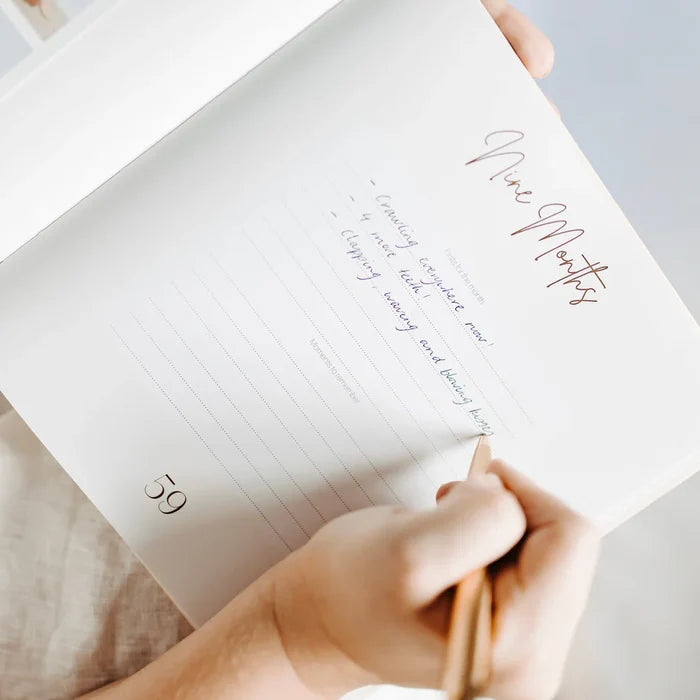 Nine Months
Firsts for the month
- Crawling everywhere now!
- 4 more teeth!
- Clapping, waving and blowing kisses
Moments to remember
59